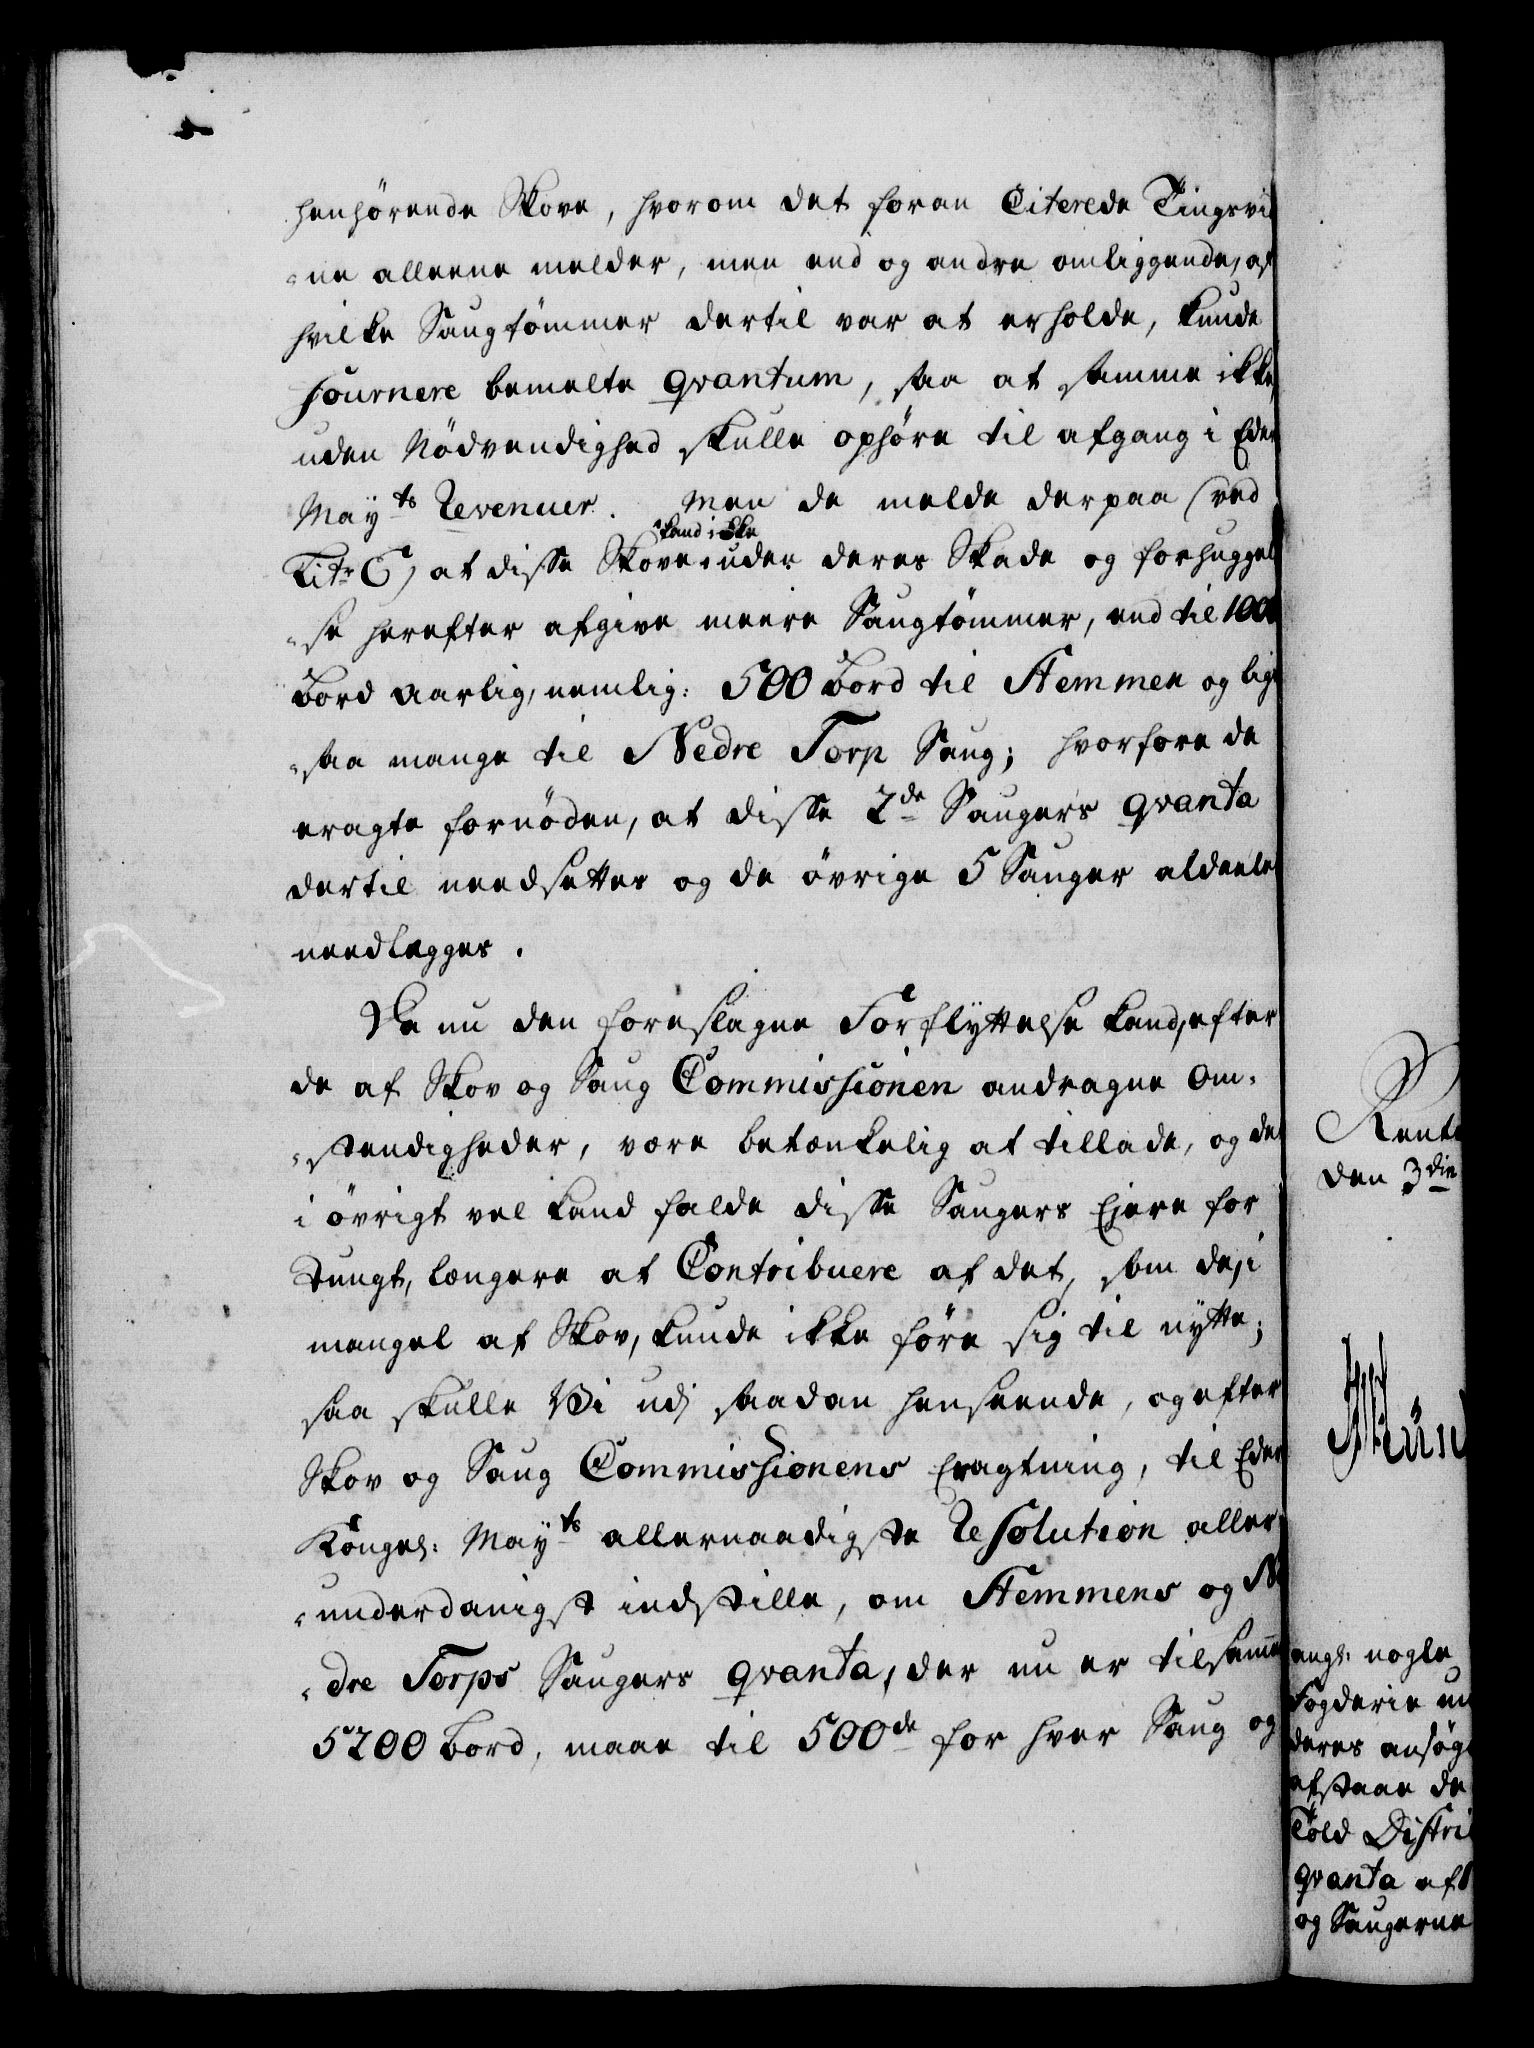 henhørende Skove, hvorom det foran Citerede Tingsvid
-ne alleene melder, men end og andre omliggende, af
hvilke Saugtømmer dertil var at erholde, kunde
fournere bemelte qvantum, saa at samme ikke,
uden Nødvendighed skulle ophøre til afgang i Eders
Mayts Revenuer. Men de melde derpaa (ved
kand ikke
Litr C) at disse Skove uden deres Skade og forhuggel
-se herefter afgive meere Saugtømmer, end til 1000
bord aarlig, nemlig: 500 bord til Stemmen og lige
-saa mange til Nedre Torp Saug; hvorfore de
eragte fornøden, at disse 2de Saugers qvanta
dertil needsettes og de øvrige 5 Sauger aldeeles
needlægges.
Da nu den foreslagne Forflyttelse kand, efter
de af Skov og Saug Commissionen andragne Om-
-stendigheder, være betænkelig at tillade, og det
i øvrigt vel kand falde disse Saugers Ejere for
Tungt, længere at Contribuere af det, som de, i
mangel af Skov, kunde ikke føre sig til nytte;
saa skulle Vi udj saadan henseende, og efter
Skov og Saug Commissionens Eragtning, til Eders
Kongel: Mayts allernaadigste Resolution aller-
-underdanigst indstille, om Stemmens og Ne
-dre Torps Saugers qvanta, der nu er tilsamen
5200 bord, maae til 500de for hver Saug og
Rente
den 3die
angl: nogle
Fogderie un
deres ansøg
afstaae de
Told Distri
qvanta af
og Saugerne